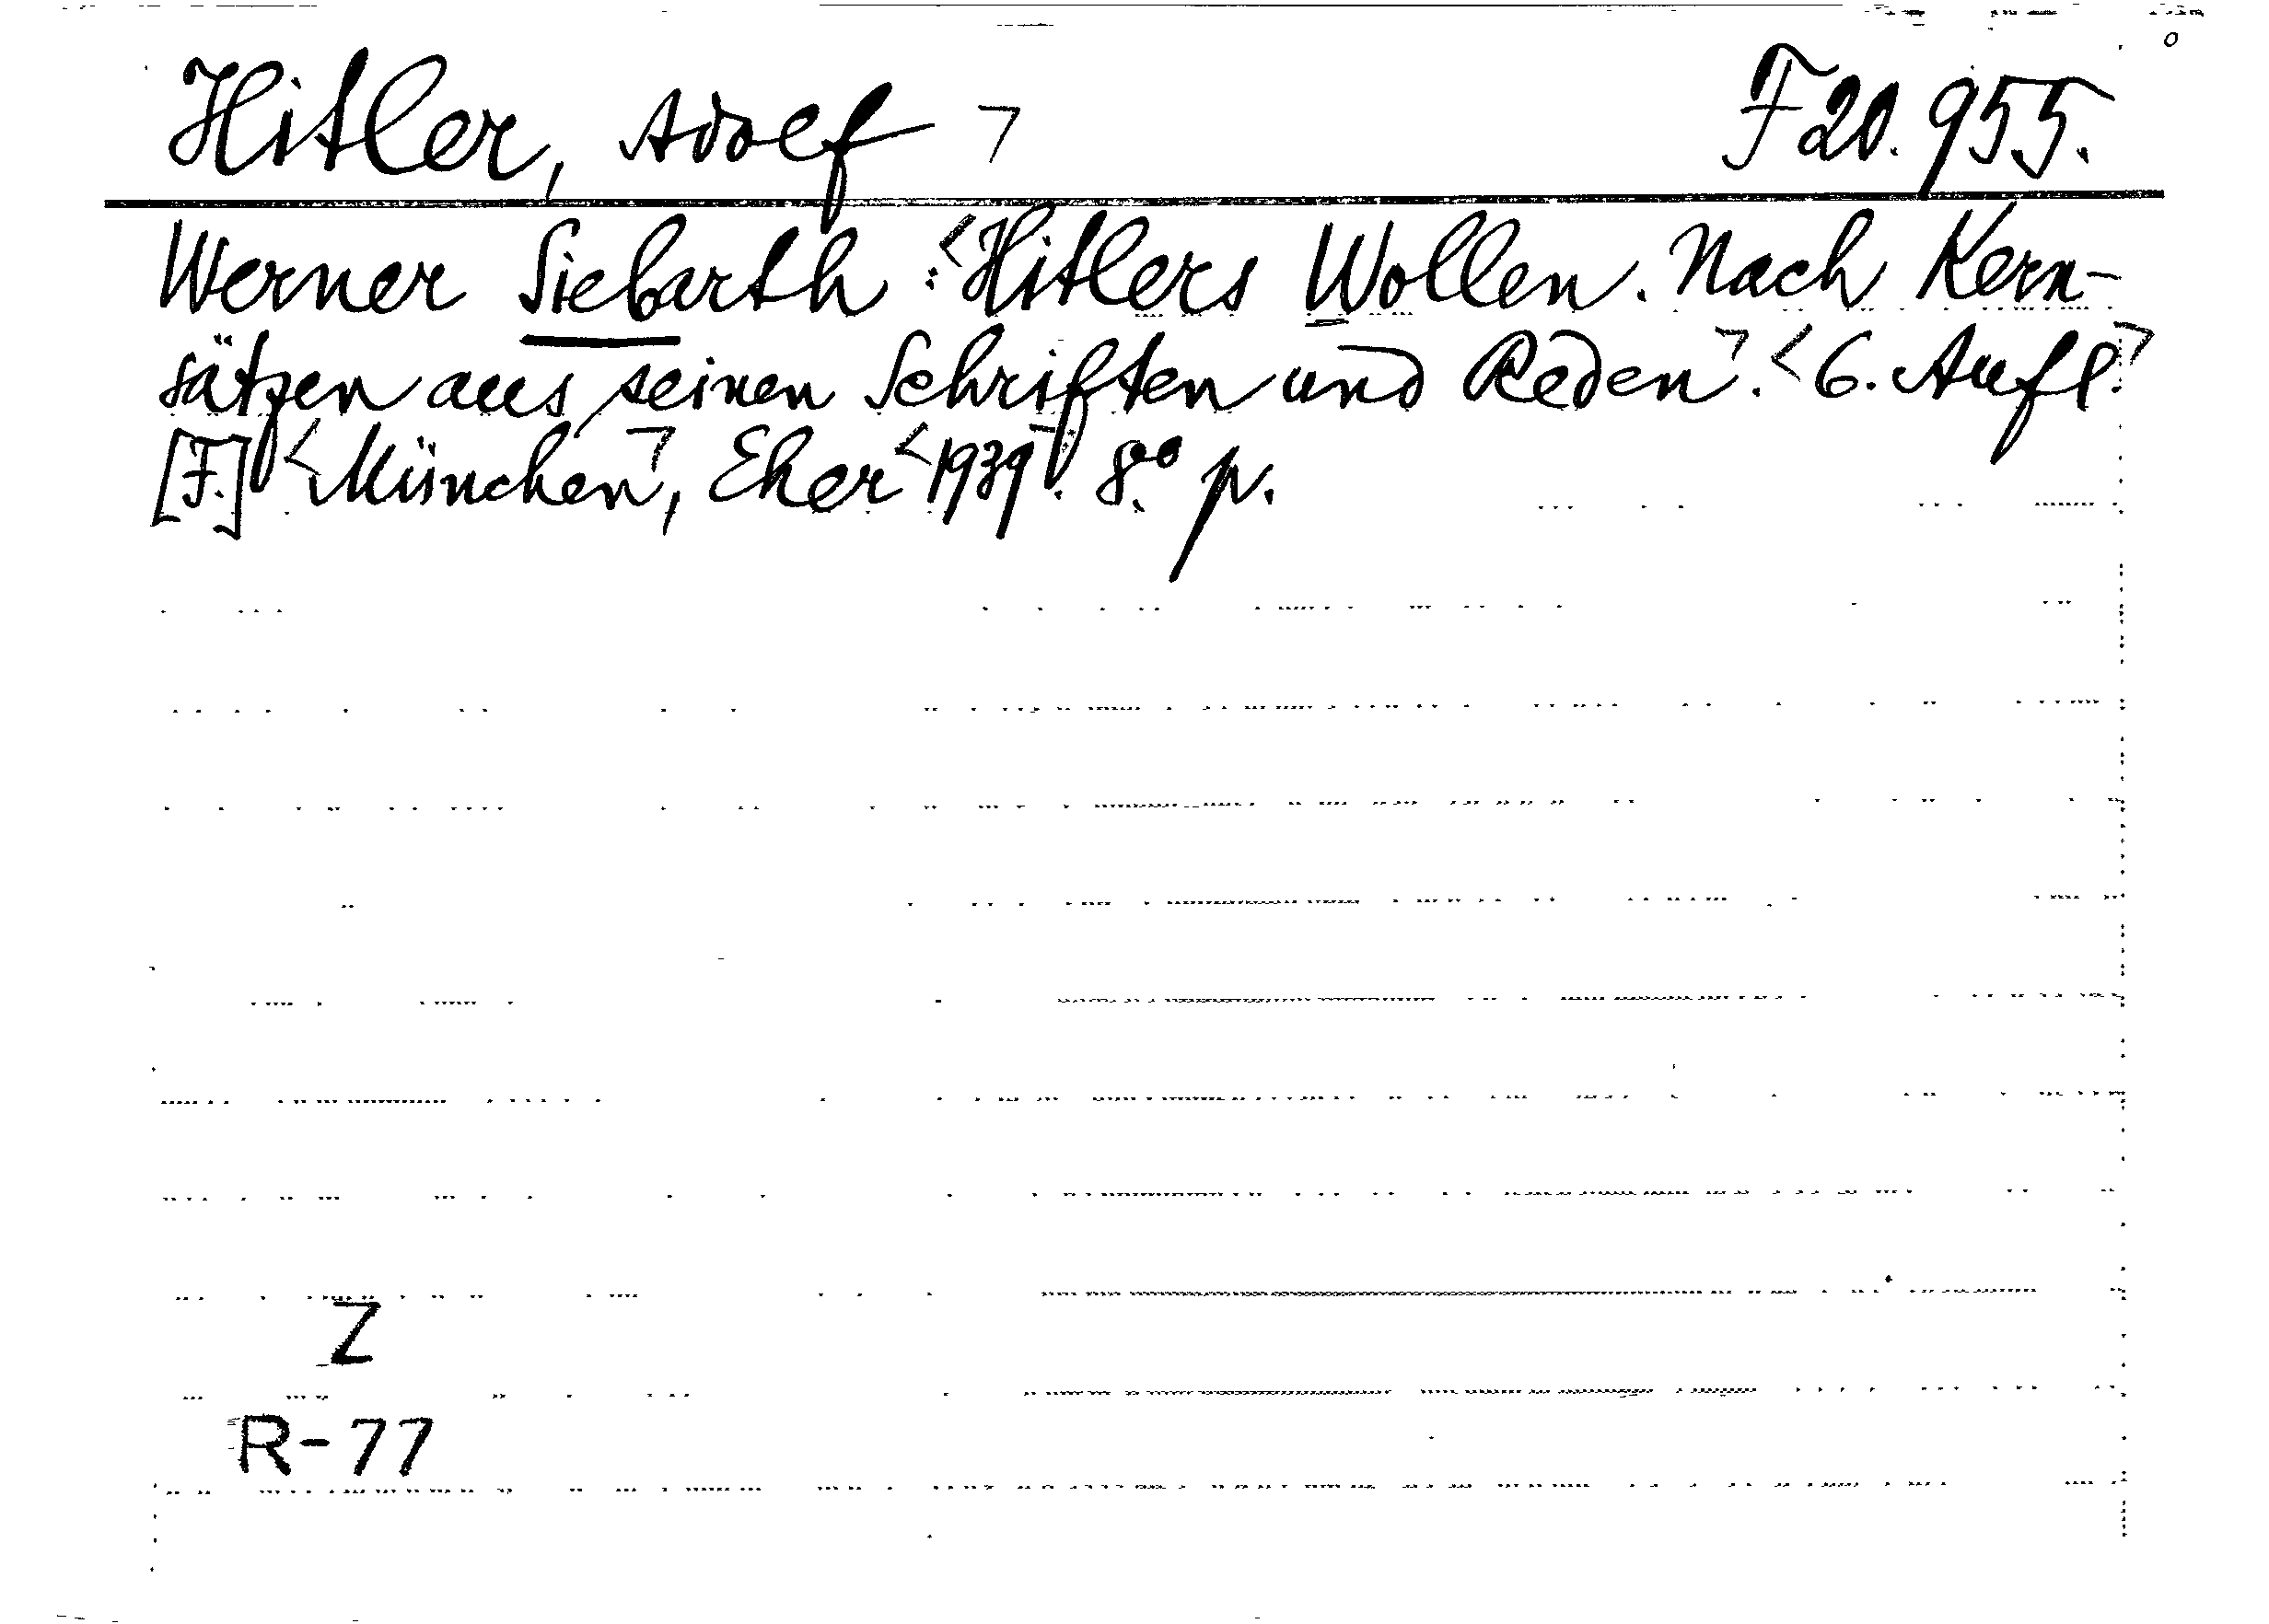 Hitler, Adolf ⌝ F 20.955.
Werner Siebarth: <Hitlers Wollen. Nach Kern-
sätzen aus seinen Schriften und Reden⌝. <6. Aufl.⌝
[F.] <München⌝, Eher <1939⌝. 8.° p.
Z
R-77